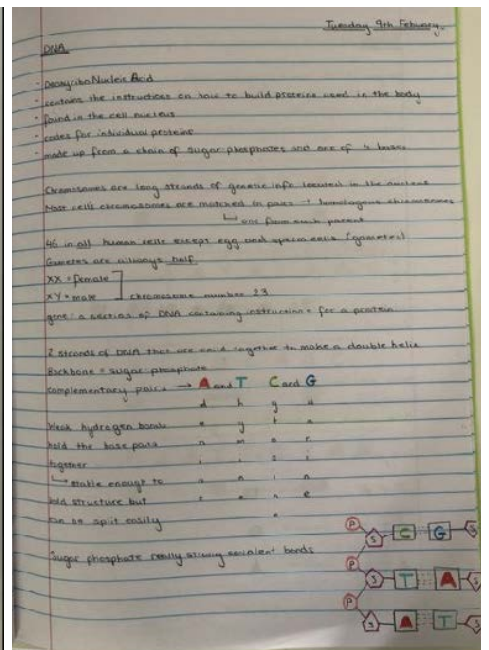 Tuesday 9th February.
DNA
- Deoxyribo Nucleic Acid
- contains the instructions on how to build proteins used in the body
- found in the cell nucleus
- codes for individual proteins
- made up from a chain of sugar phosphates and one of 4 bases
Chromosomes are long strands of genetic info located in the nucleus
Most cells chromosomes are matched in pairs → homologous chromosomes
one from each parent
46 in all human cells except egg and sperm cells (gametes)
Gametes are always half
XX = female
XY = male ] chromosome number 23
gene: a section of DNA containing instructions for a protein
2 strands of DNA that are together to make a double helix
Backbone = sugar phosphate
complementary pairs → A and T C and G
Weak hydrogen bonds
hold the base pairs
together
stable enough to
hold structure but
can be split easily
Sugar phosphate really strong covalent bonds
adenine
thymine
cytosine
guanine
P
S C G S
P
S T A S
P
S A T S